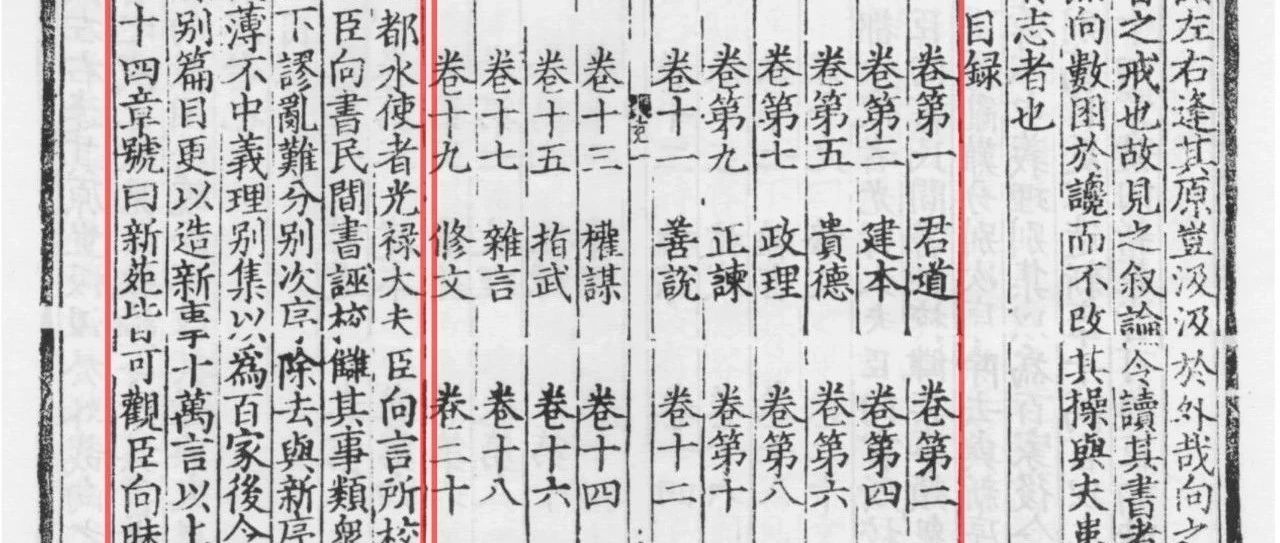 左右逢其原豈汲汲於外哉向之
之戒也故見之叙論令讀其書者
向數困於讒而不改其操與夫患
志者也
目録
卷第一 君道 卷第二
卷第三 建本 卷第四
卷第五 貴德 卷第六
卷第七 政理 卷第八
卷第九 正諫 卷第十
卷十一 善說 卷十二
卷十三 權謀 卷十四
卷十五 指武 卷十六
卷十七 雜言 卷十八
卷十九 脩文 卷二十
都水使者光禄大夫臣向言所校
臣向書民間書誣校讎其事類衆
下謬亂難分别次序除去與新序
薄不中義理别集以為百家後令
别篇目更以造新事十萬言以上
十四章號曰新苑皆可觀臣向昧